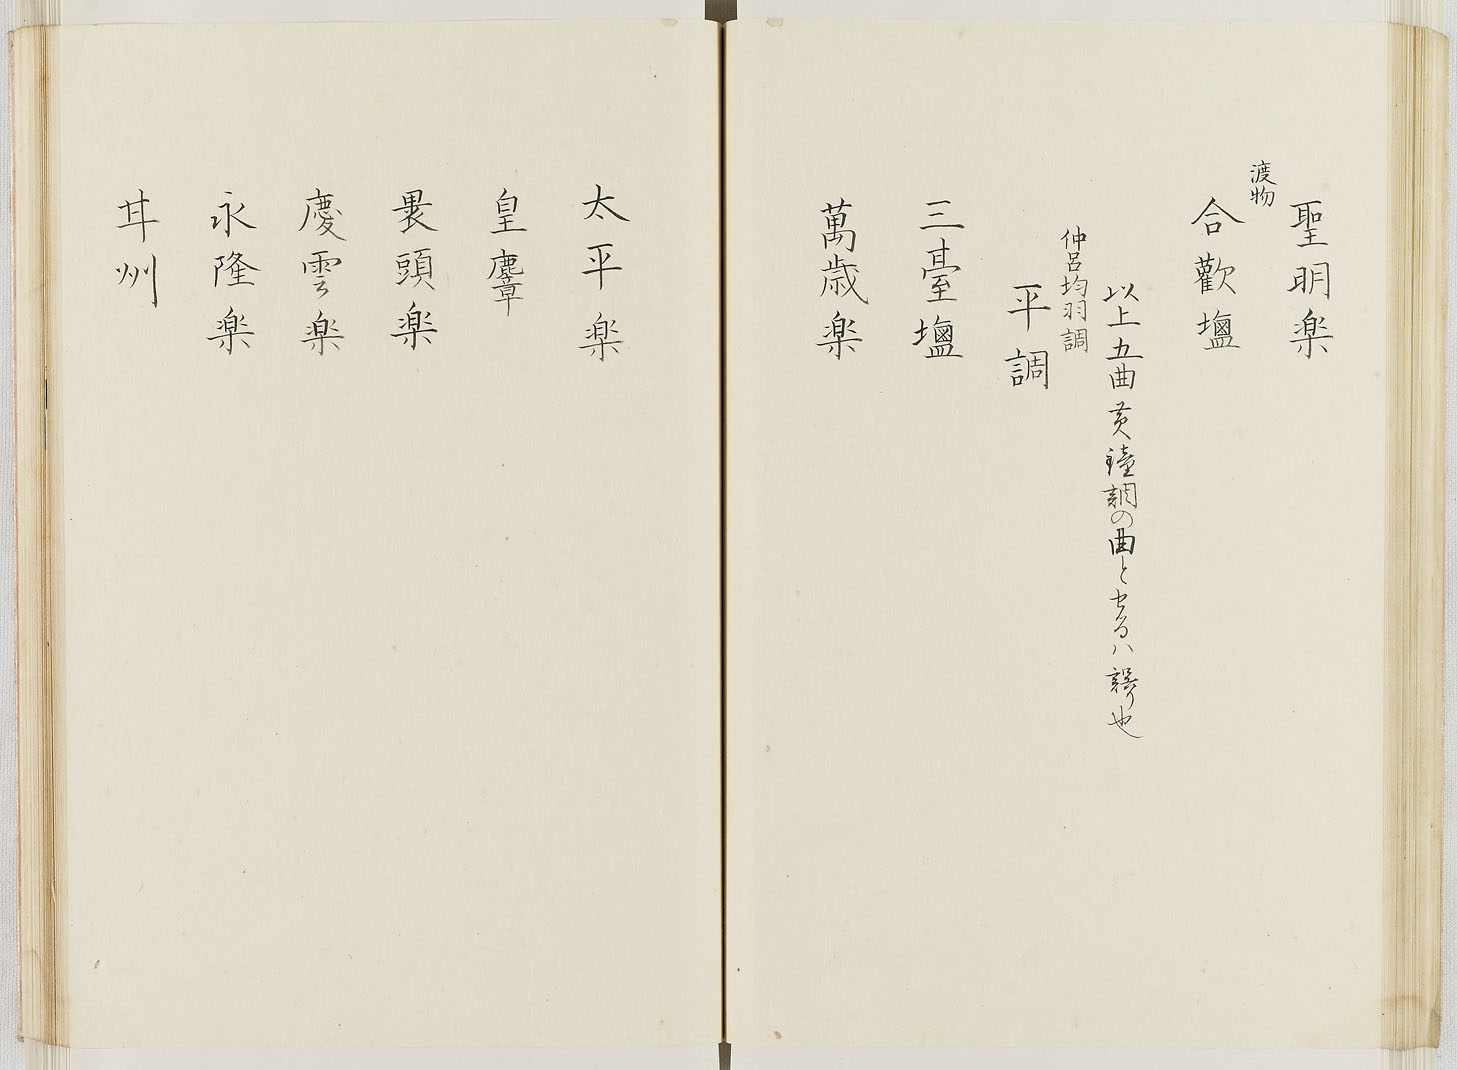 聖明楽
渡物
合歡塩
以上五曲黄鐘調の曲とせるハ誤り也
仲呂均羽調
平調
三臺塩
萬歳楽
太平楽
皇麞
畏頭楽
慶雲楽
永隆楽
甘州